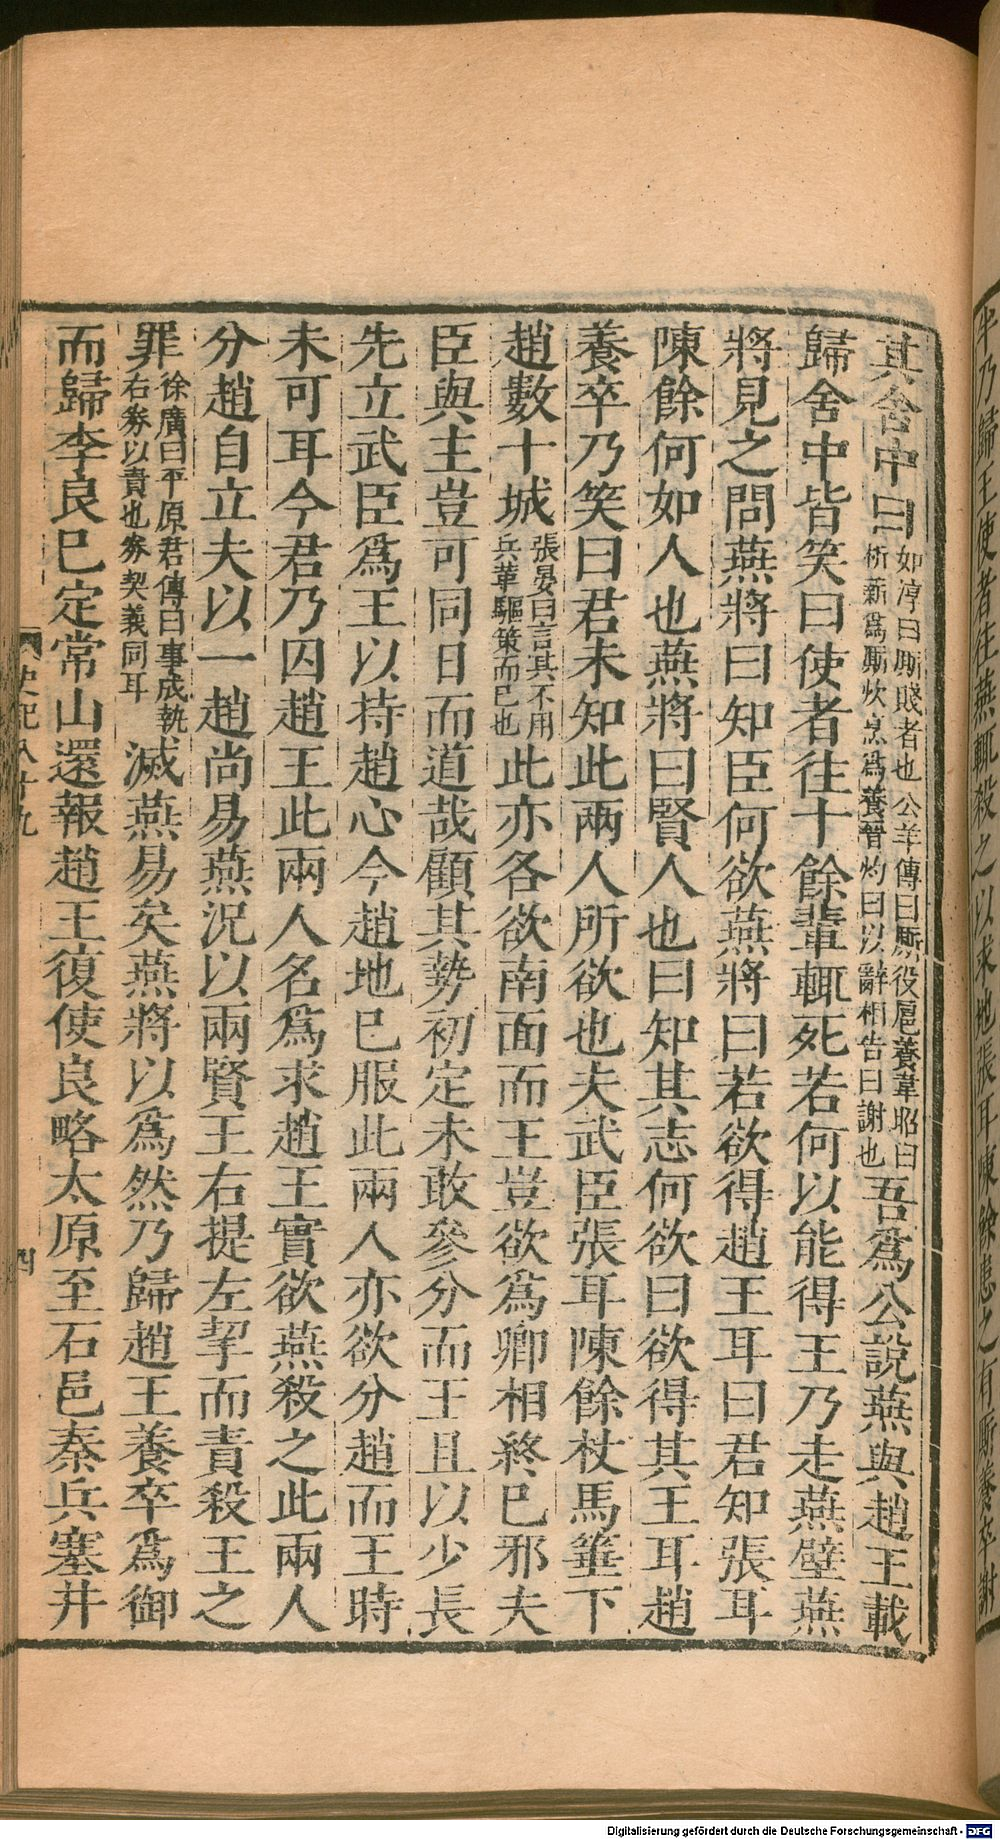 半乃歸王使者往燕輒殺之以求地張耳陳餘患之有廝養卒謝
其舍中曰如淳曰廝賤者也公羊傳曰廝役扈養韋昭曰析薪爲廝炊烹爲養晉灼曰以辭相告曰謝也吾爲公說燕與趙王載
歸舍中皆笑曰使者往十餘輩輒死若何以能得王乃走燕壁燕
將見之問燕將曰知臣何欲燕將曰若欲得趙王耳曰君知張耳
陳餘何如人也燕將曰賢人也曰知其志何欲曰欲得其王耳趙
養卒乃笑曰君未知此兩人所欲也夫武臣張耳陳餘杖馬箠下
趙數十城張晏曰言其不用兵革驅策而已也此亦各欲南面而王豈欲爲卿相終已邪夫
臣與主豈可同日而道哉顧其勢初定未敢參分而王且以少長
先立武臣爲王以持趙心今趙地已服此兩人亦欲分趙而王時
未可耳今君乃囚趙王此兩人名爲求趙王實欲燕殺之此兩人
分趙自立夫以一趙尚易燕況以兩賢王右提左挈而責殺王之
罪徐廣曰平原君傳曰事成執右券以責也券契義同耳滅燕易矣燕將以爲然乃歸趙王養卒爲御
而歸李良已定常山還報趙王復使良略太原至石邑秦兵塞井
史記八十九
四
Digitalisierung gefördert durch die Deutsche Forschungsgemeinschaft - DFG